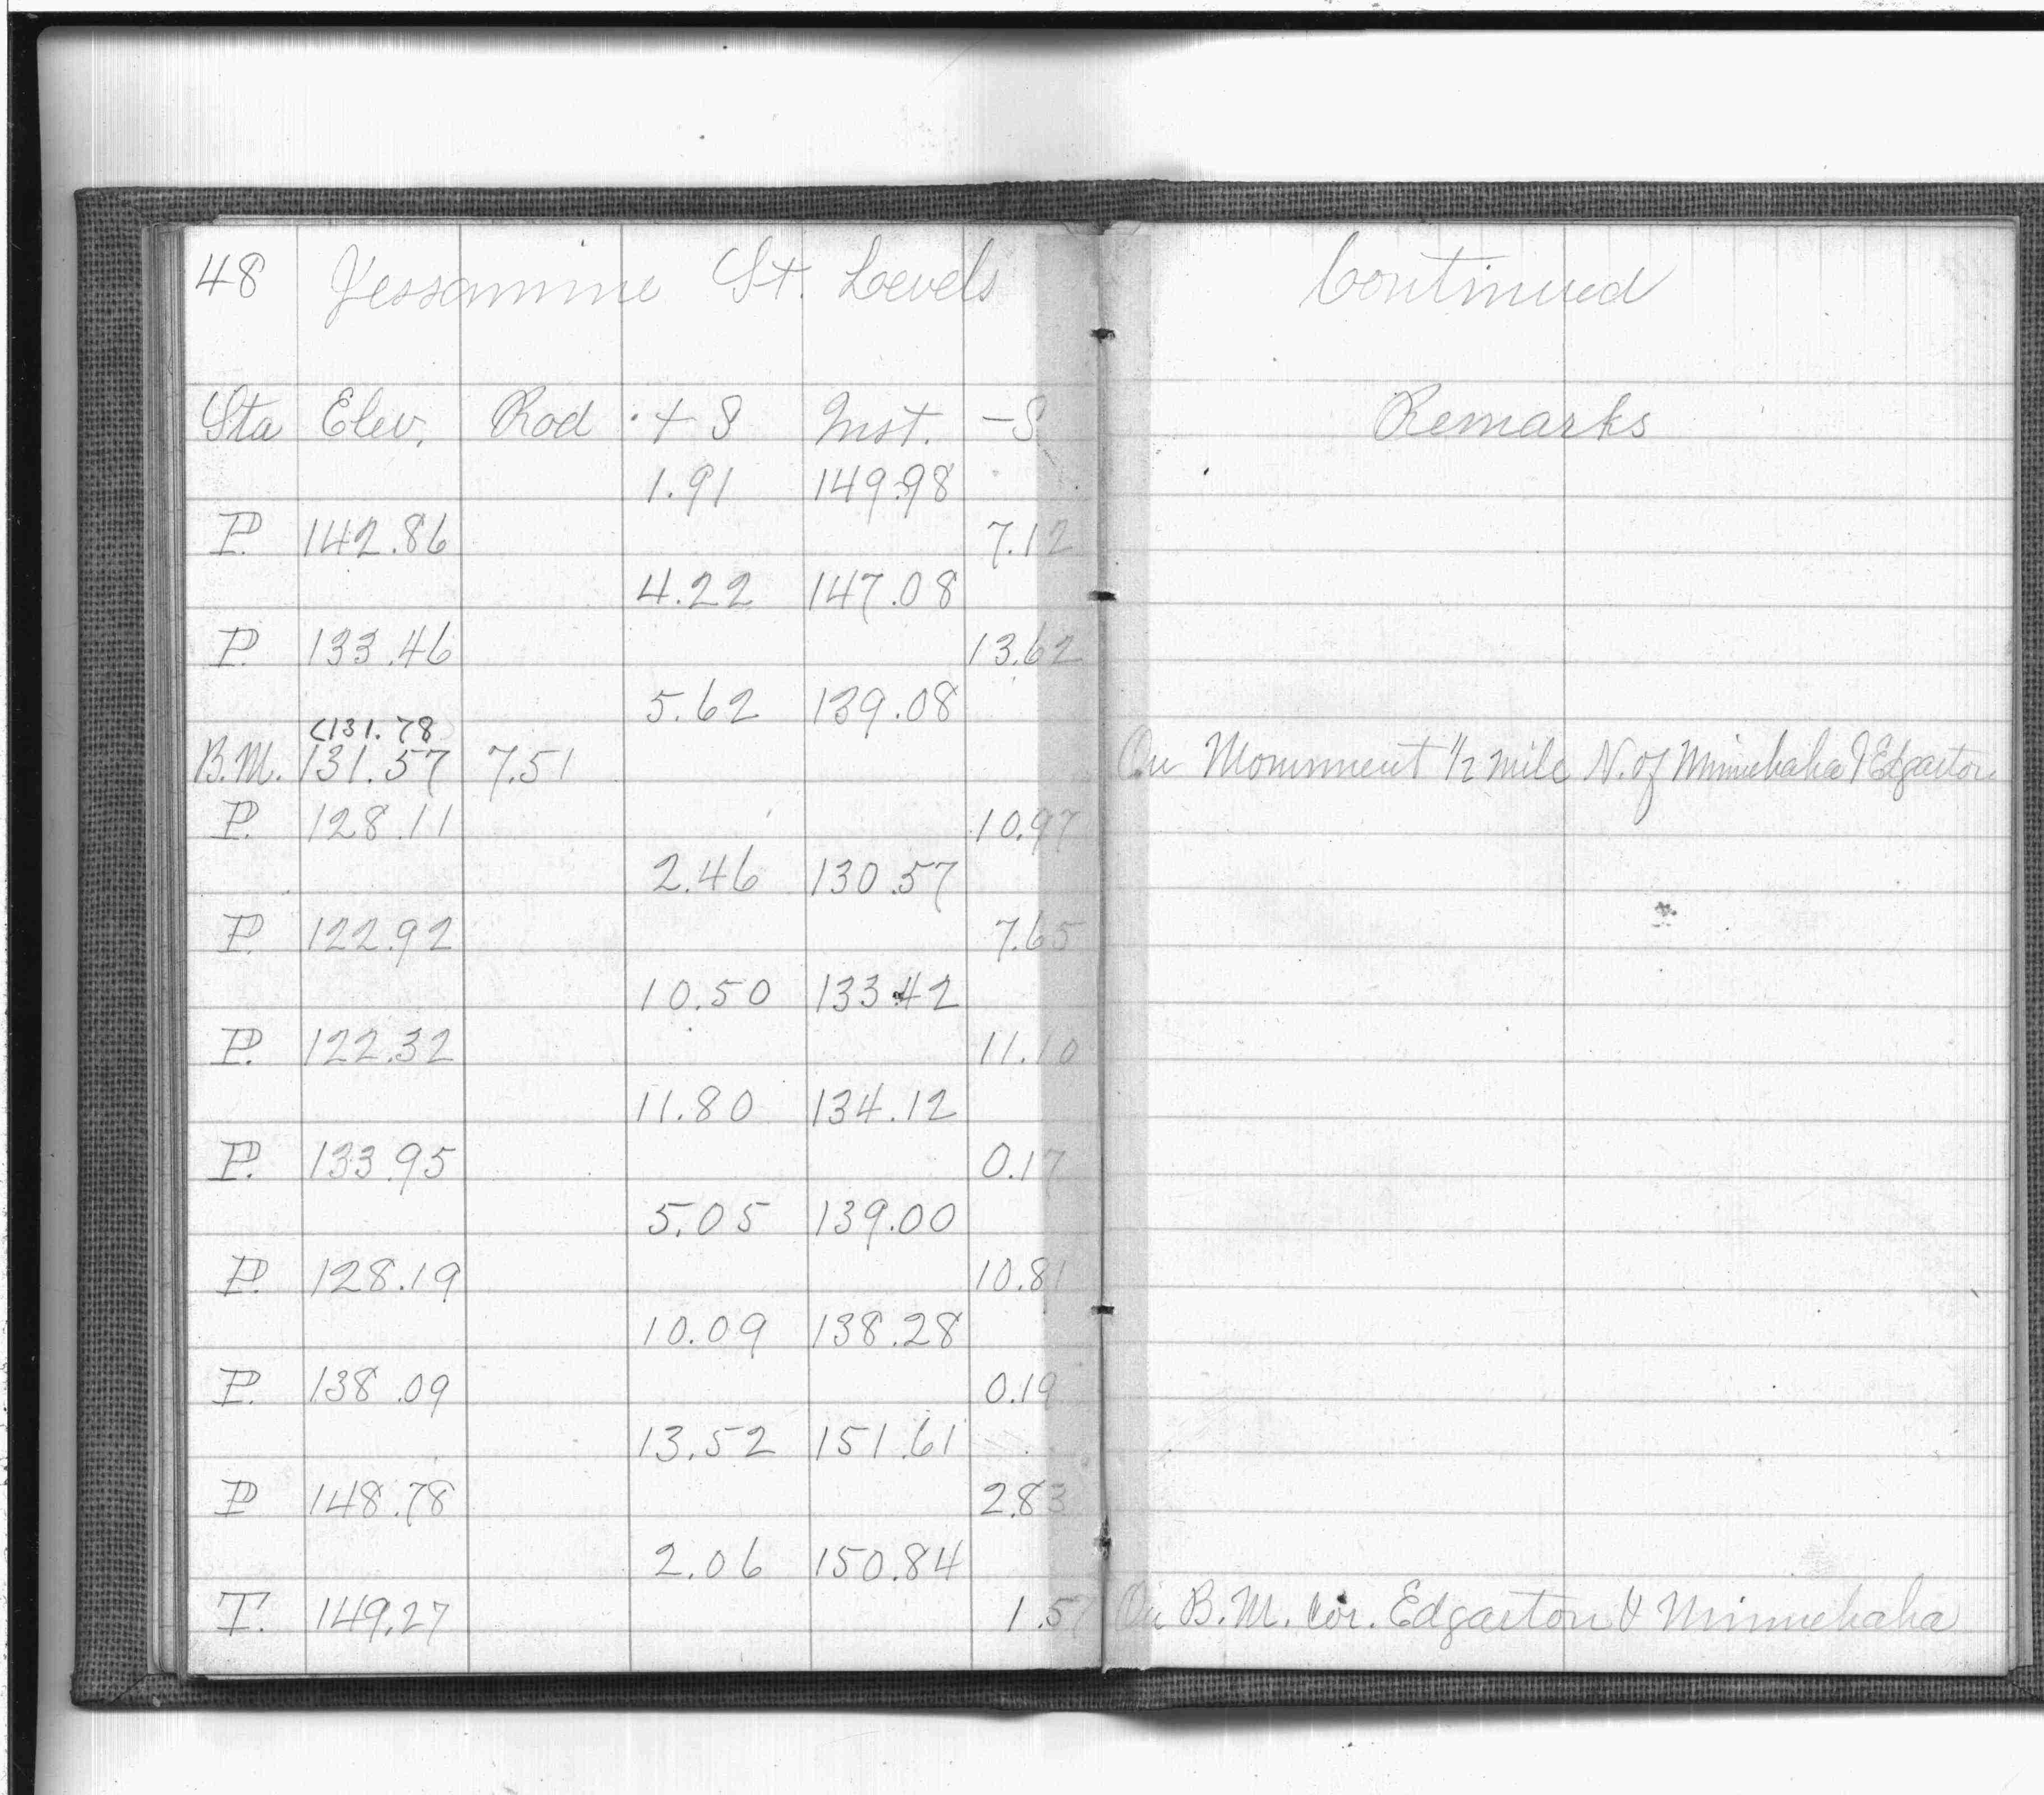 48 Jessamine St. Levels Continued
Sta Elev. Rod + S Inst. -S Remarks
1.91 149.98
P. 142.86 7.12
4.22 147.08
P. 133.46 13.62
5.62 139.08
(131.78)
B.M. 131.57 7.51 On Monument 1/2 mile N. of Minnehaha & Edgarton
P. 128.11 10.97
2.46 130.57
P. 122.92 7.65
10.50 133.42
P. 122.32 11.10
11.80 134.12
P. 133.95 0.17
5.05 139.00
P. 128.19 10.81
10.09 138.28
P. 138.09 0.19
13.52 151.61
P 148.78 2.83
2.06 150.84
T. 149.27 1.57 On B.M. Cor. Edgarton & Minnehaha